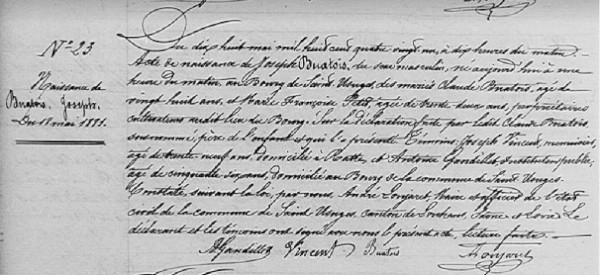 N° 23
Naissance de
Buatois Joseph.
Du 18 mai 1881.
Du dix huit mai mil huit cent quatre vingt un, à dix heures du matin
Acte de naissance de Joseph Buatois, du sexe masculin, né aujourd'hui à une
heure du matin, au Bourg de Saint Usuge, des mariés Claude Buatois, âgé de
vingt huit ans, et Marie Françoise Petit, âgée de trente deux ans, propriétaires
cultivateurs audit lieu du Bourg. Sur la déclaration faite par ledit Claude Buatois,
susnommé, père de l'enfant et qui l'a présenté. Témoins: Joseph Vincent, menuisier,
âgé de trente neuf ans, domicilié à Ratte, et Antoine Gandillet, instituteur public,
âgé de cinquante six ans, domicilié au Bourg de la commune de Saint Usuge.
Constaté suivant la loi, par nous, André Loujaret, Maire et officier de l'état
civil de la commune de Saint Usuge, canton de Louhans, Saône et Loire. Le
déclarant et les témoins ont signé avec nous le présent acte, lecture faite.
AGandillet Vincent Buatois